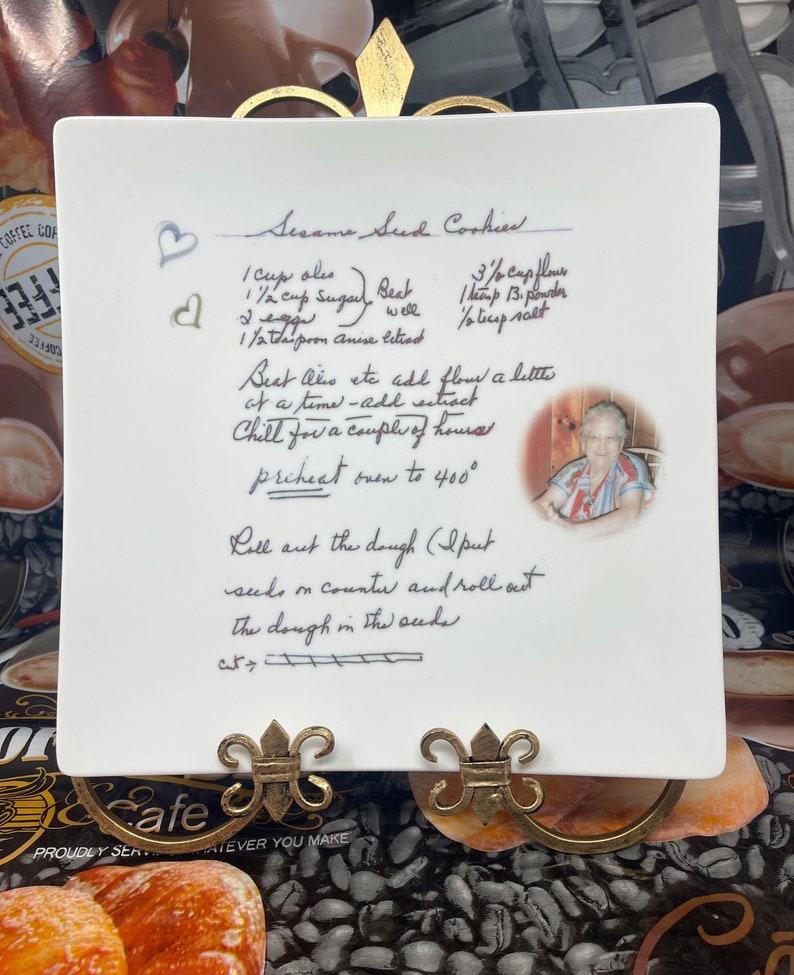 Sesame Seed Cookies
1 cup oleo
1 1/2 cup sugar
2 eggs
Beat well
1 1/2 teaspoon anise extract
3 1/2 cup flour
1 teasp B. powder
1/2 teasp salt
Beat Oleo etc add flour a little
at a time - add extract
Chill for a couple of hours
preheat oven to 400°
Roll out the dough (I put
seeds on counter and roll out
the dough in the seeds
cut →
COFFEE
COFFEE
Cafe
PROUDLY SERVING WHATEVER YOU MAKE